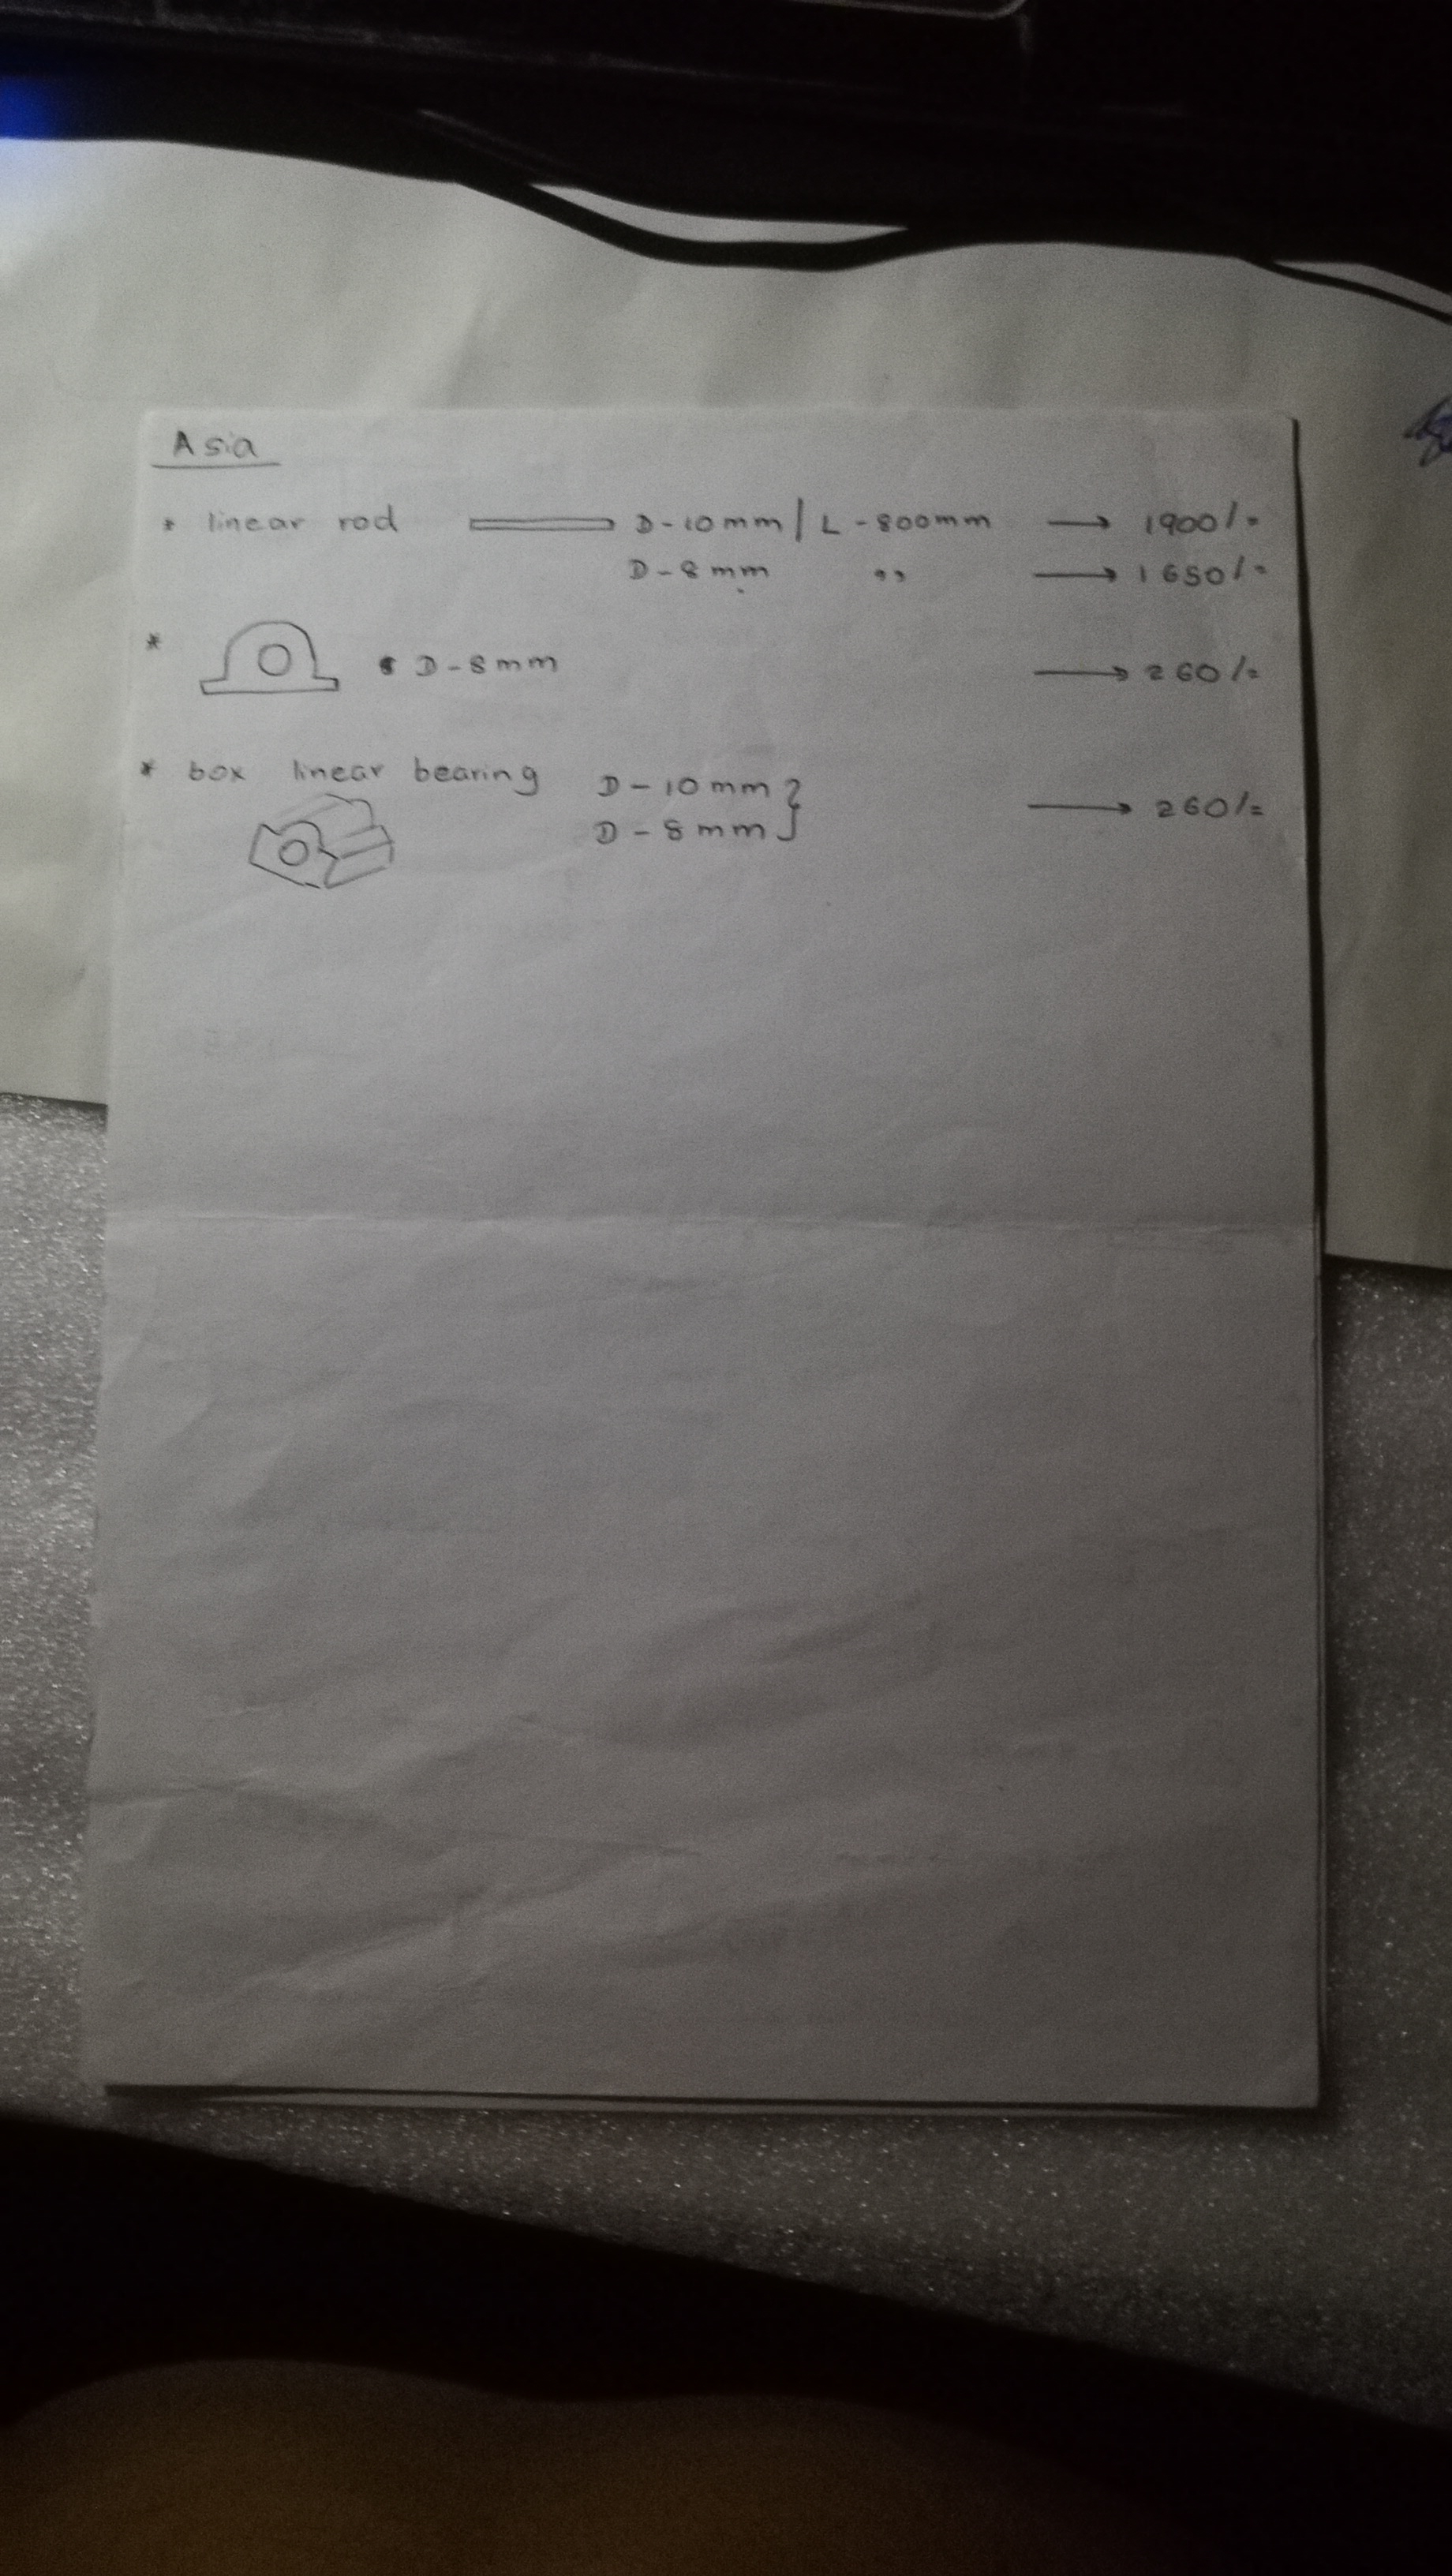 Asia
* linear rod D-10mm | L-800mm → 1900/=
D-8mm ,, → 1650/=
* D-8mm → 260/=
* box linear bearing D-10mm } → 260/=
D-8mm